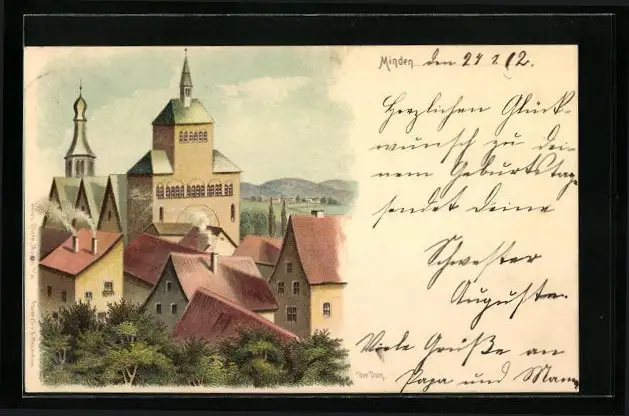 Minden den 24.2.02.
Herzlichen Glück-
wunsch zu dei-
nem Geburtstage
sendet Deine
Schwester
Auguste.
Viele Grüße an
Papa und Mama
Der Dom.